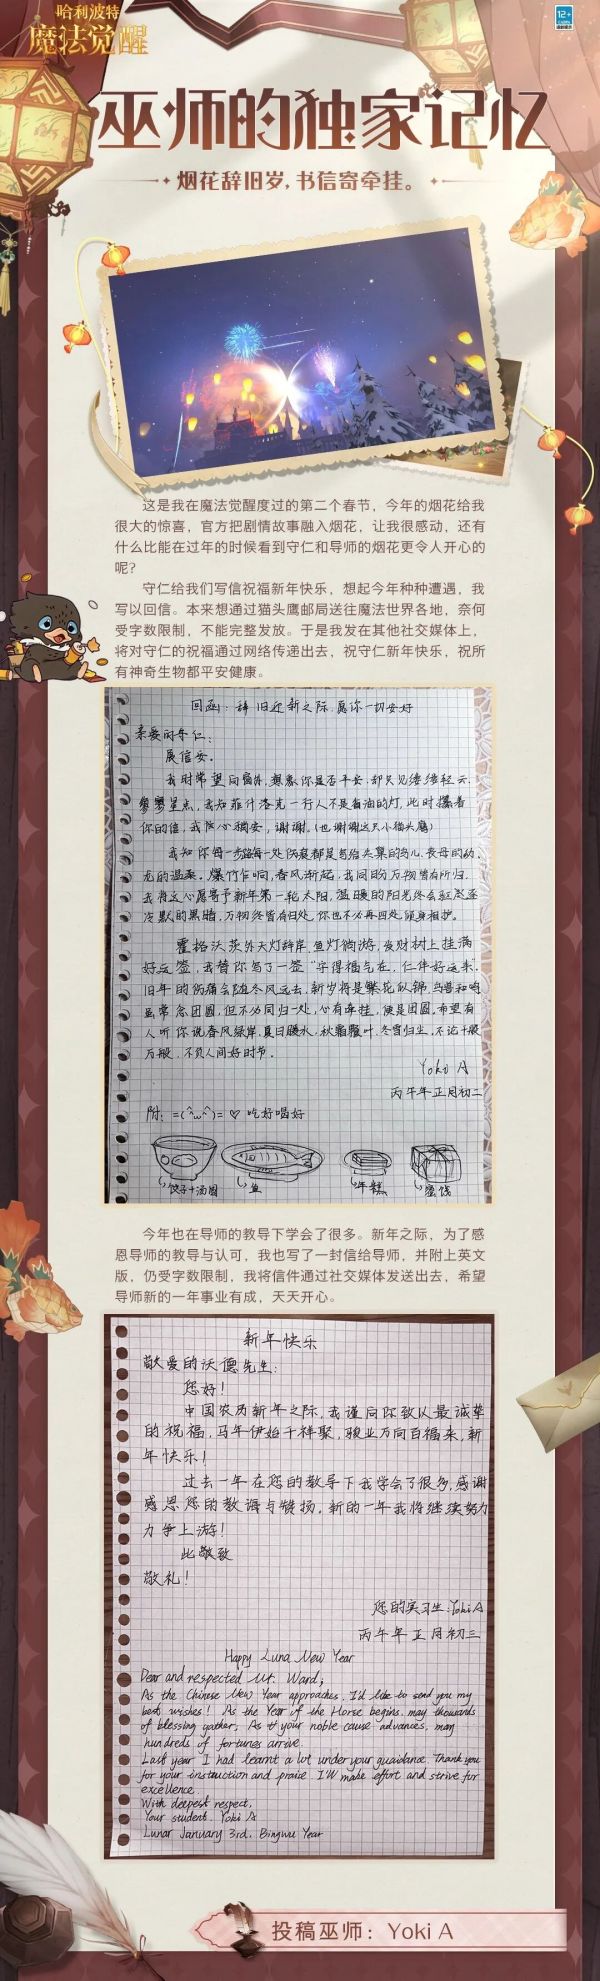 哈利波特
魔法觉醒
12+
巫师的独家记忆
烟花辞旧岁，书信寄牵挂。
这是我在魔法觉醒度过的第二个春节，今年的烟花给我
很大的惊喜，官方把剧情故事融入烟花，让我很感动，还有
什么比能在过年的时候看到守仁和导师的烟花更令人开心的
呢？
守仁给我们写信祝福新年快乐，想起今年种种遭遇，我
写以回信。本来想通过猫头鹰邮局送往魔法世界各地，奈何
受字数限制，不能完整发放。于是我发在其他社交媒体上，
将对守仁的祝福通过网络传递出去，祝守仁新年快乐，祝所
有神奇生物都平安健康。
回函：辞旧迎新之际，愿你一切安好
亲爱的守仁：
展信安。
我时常望向窗外，想象你是否平安，却只见缕缕轻云，
寥寥星点，我知菲什洛克一行人不是省油的灯，此时攥着
你的信，我内心稍安，谢谢。（也谢谢这只小猫头鹰）
我知你每一步路每一处伤痕都是
龙的温柔。爆竹乍响，春风渐起，我同盼万物皆有所归，
我将这心愿寄予新年第一轮太阳，温暖的阳光终会
冷默的黑暗，万物终皆有归处，你也不必再四处
霍格沃茨外天灯辞岸，鱼灯徜游，发财树上挂满
好运签，我替你写了一签“守得福气在，仁伴好运来”
旧年的伤痛会随冬风远去，新岁将是繁花似锦，鸟兽和鸣
虽常念团圆，但不必同归一处，心有牵挂，便是团圆，希望有
人听你说春风绿岸，夏日暖水，秋霜飘叶，冬雪归尘，不论千般
万般，不负人间好时节。
Yoki A
丙午年正月初二
附：=(^ω^)= ♡ 吃好喝好
饺子+汤圆 鱼 年糕 蜜饯
今年也在导师的教导下学会了很多。新年之际，为了感
恩导师的教导与认可，我也写了一封信给导师，并附上英文
版，仍受字数限制，我将信件通过社交媒体发送出去，希望
导师新的一年事业有成，天天开心。
新年快乐
敬爱的沃德先生：
您好！
中国农历新年之际，我谨向你致以最诚挚
的祝福，马年伊始千祥聚，骏业万向百福来，新
年快乐！
过去一年在您的教导下我学会了很多，感谢
感恩您的教诲与赞扬，新的一年我将继续努力
力争上游！
此敬致
敬礼！
您的实习生：Yoki A
丙午年正月初三
Happy Luna New Year
Dear and respected Mr. Ward,
As the Chinese New Year approaches, I'd like to send you my
best wishes! As the Year of the Horse begins, may thousands
of blessing gather; As your noble cause advances, may
hundreds of fortunes arrive.
Last year I had learnt a lot under your guaidance. Thank you
for your instruction and praise. I'll make effort and strive for
excellence.
With deepest respect,
Your student, Yoki A
Lunar January 3rd, Bingwu Year
投稿巫师：Yoki A